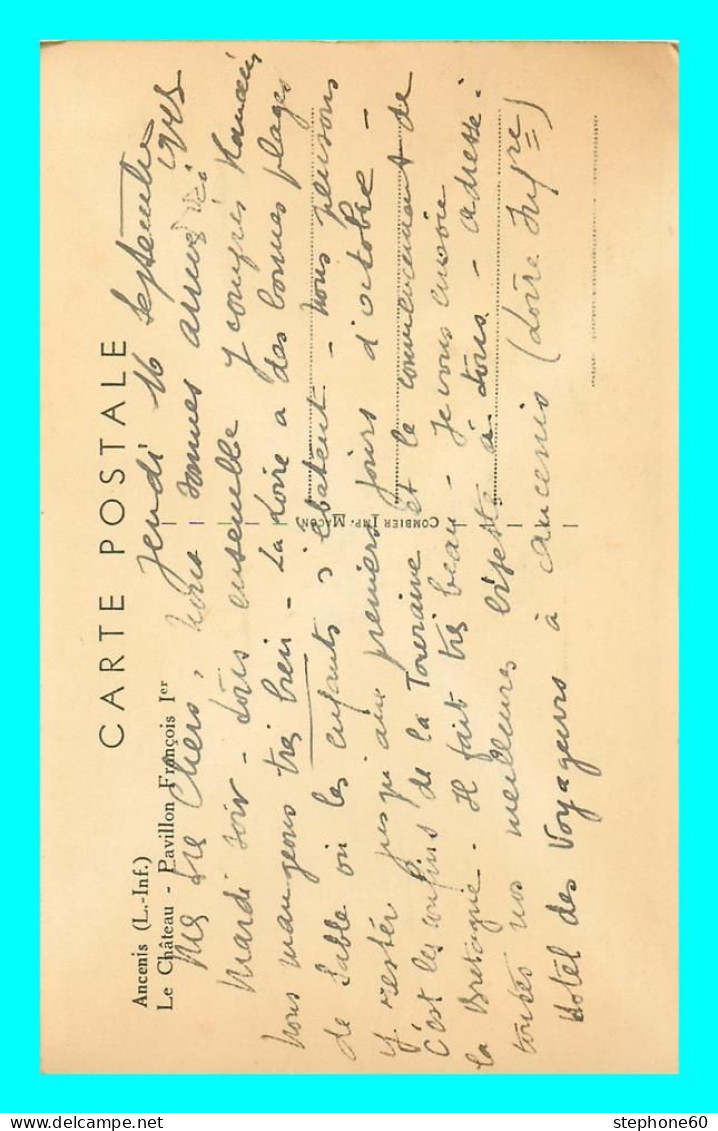 CARTE POSTALE
Ancenis (L.-Inf.)
Le Château - Pavillon François Ier
COMBIER IMP. MACON
Jeudi 16 Septembre 1948
Mes Chers, nous sommes arrivés ici
Mardi soir - tous ensemble y compris
nous mangeons très bien - La Loire a des bonnes plages
de Sable où les enfants s'ébatent - nous pensons
y rester jusqu'aux premiers jours d'octobre -
C'est les confins de la Touraine et le commencement de
la Bretagne. Il fait très beau - Je vous envoie
toutes nos meilleures à tous - adresse :
Hotel des Voyageurs à Ancenis (Loire Infre)
stephone60